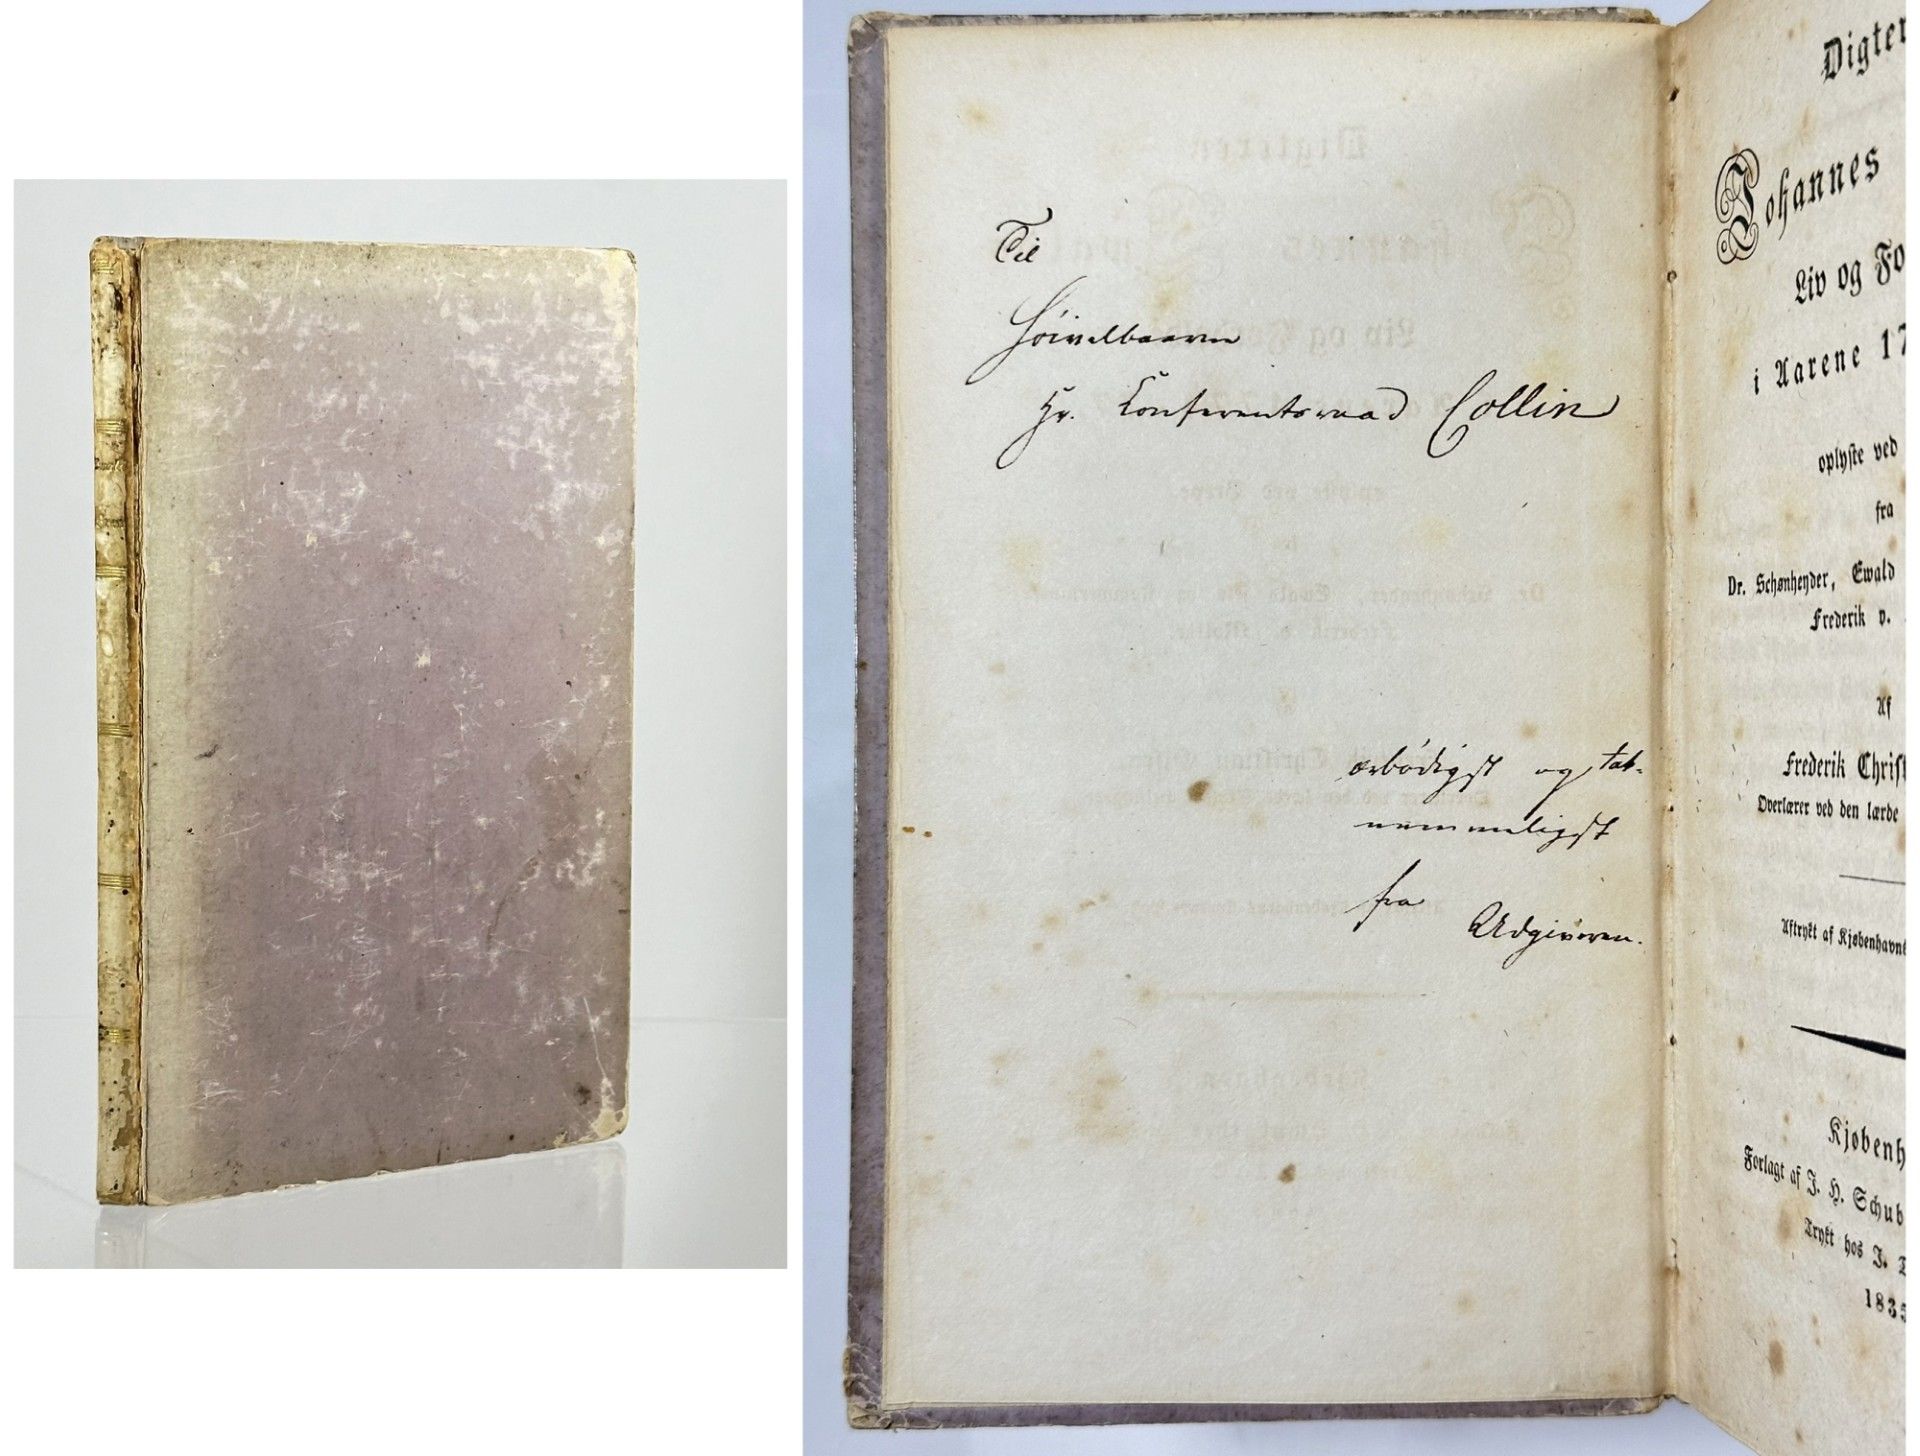 Til
Høivelbaarne
Hr. Conferentsraad Collin
ærbødigst og tak-
nemmeligst
fra
Udgiveren.
Digter
Johannes
Liv og Fo
i Aarene 17
oplyste ved
fra
Dr. Schønheyder, Ewald
Frederik v.
Af
Frederik Christ
Overlærer ved den lærde
Aftrykt af Kjøbenhavns
Kjøbenh
Forlagt af J. H. Schub
Trykt hos J.
1835